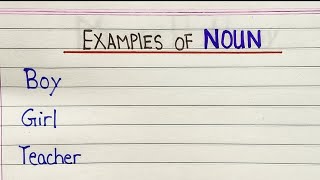 EXAMPLES OF NOUN
Boy
Girl
Teacher